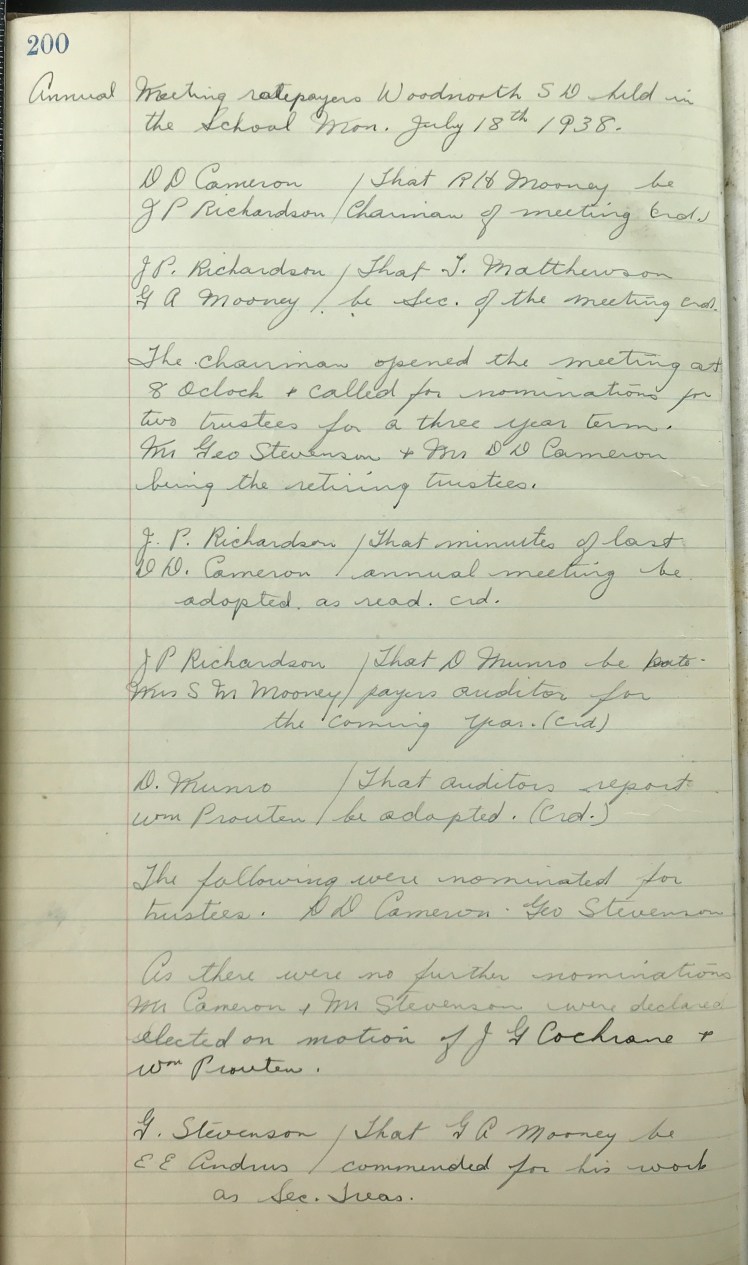 200
Annual Meeting ratepayers Woodnorth S D held in
the School Mon. July 18th 1938.
D D Cameron / That R H Mooney be
J P Richardson / Chairman of meeting Crd.)
J P. Richardson / That T. Matthewson
G A Mooney / be Sec. of the meeting crd.
The chairman opened the meeting at
8 Oclock + called for nominations for
two trustees for a three year term.
Mr Geo Stevenson + Mr D D Cameron
being the retiring trustees.
J. P. Richardson / That minutes of last
D D. Cameron / annual meeting be
adopted. as read. crd.
J P Richardson / That D Munro be rate-
Mrs S M Mooney / payers auditor for
the coming year. (crd)
D. Munro / That auditors report
Wm Prouten / be adopted. (Crd.)
The following were nominated for
trustees. D D Cameron. Geo Stevenson
As there were no further nominations
Mr Cameron + Mr Stevenson were declared
elected on motion of J G Cochrane +
Wm Prouten.
G. Stevenson / That G A Mooney be
E E Andrus / commended for his work
as Sec. Treas.